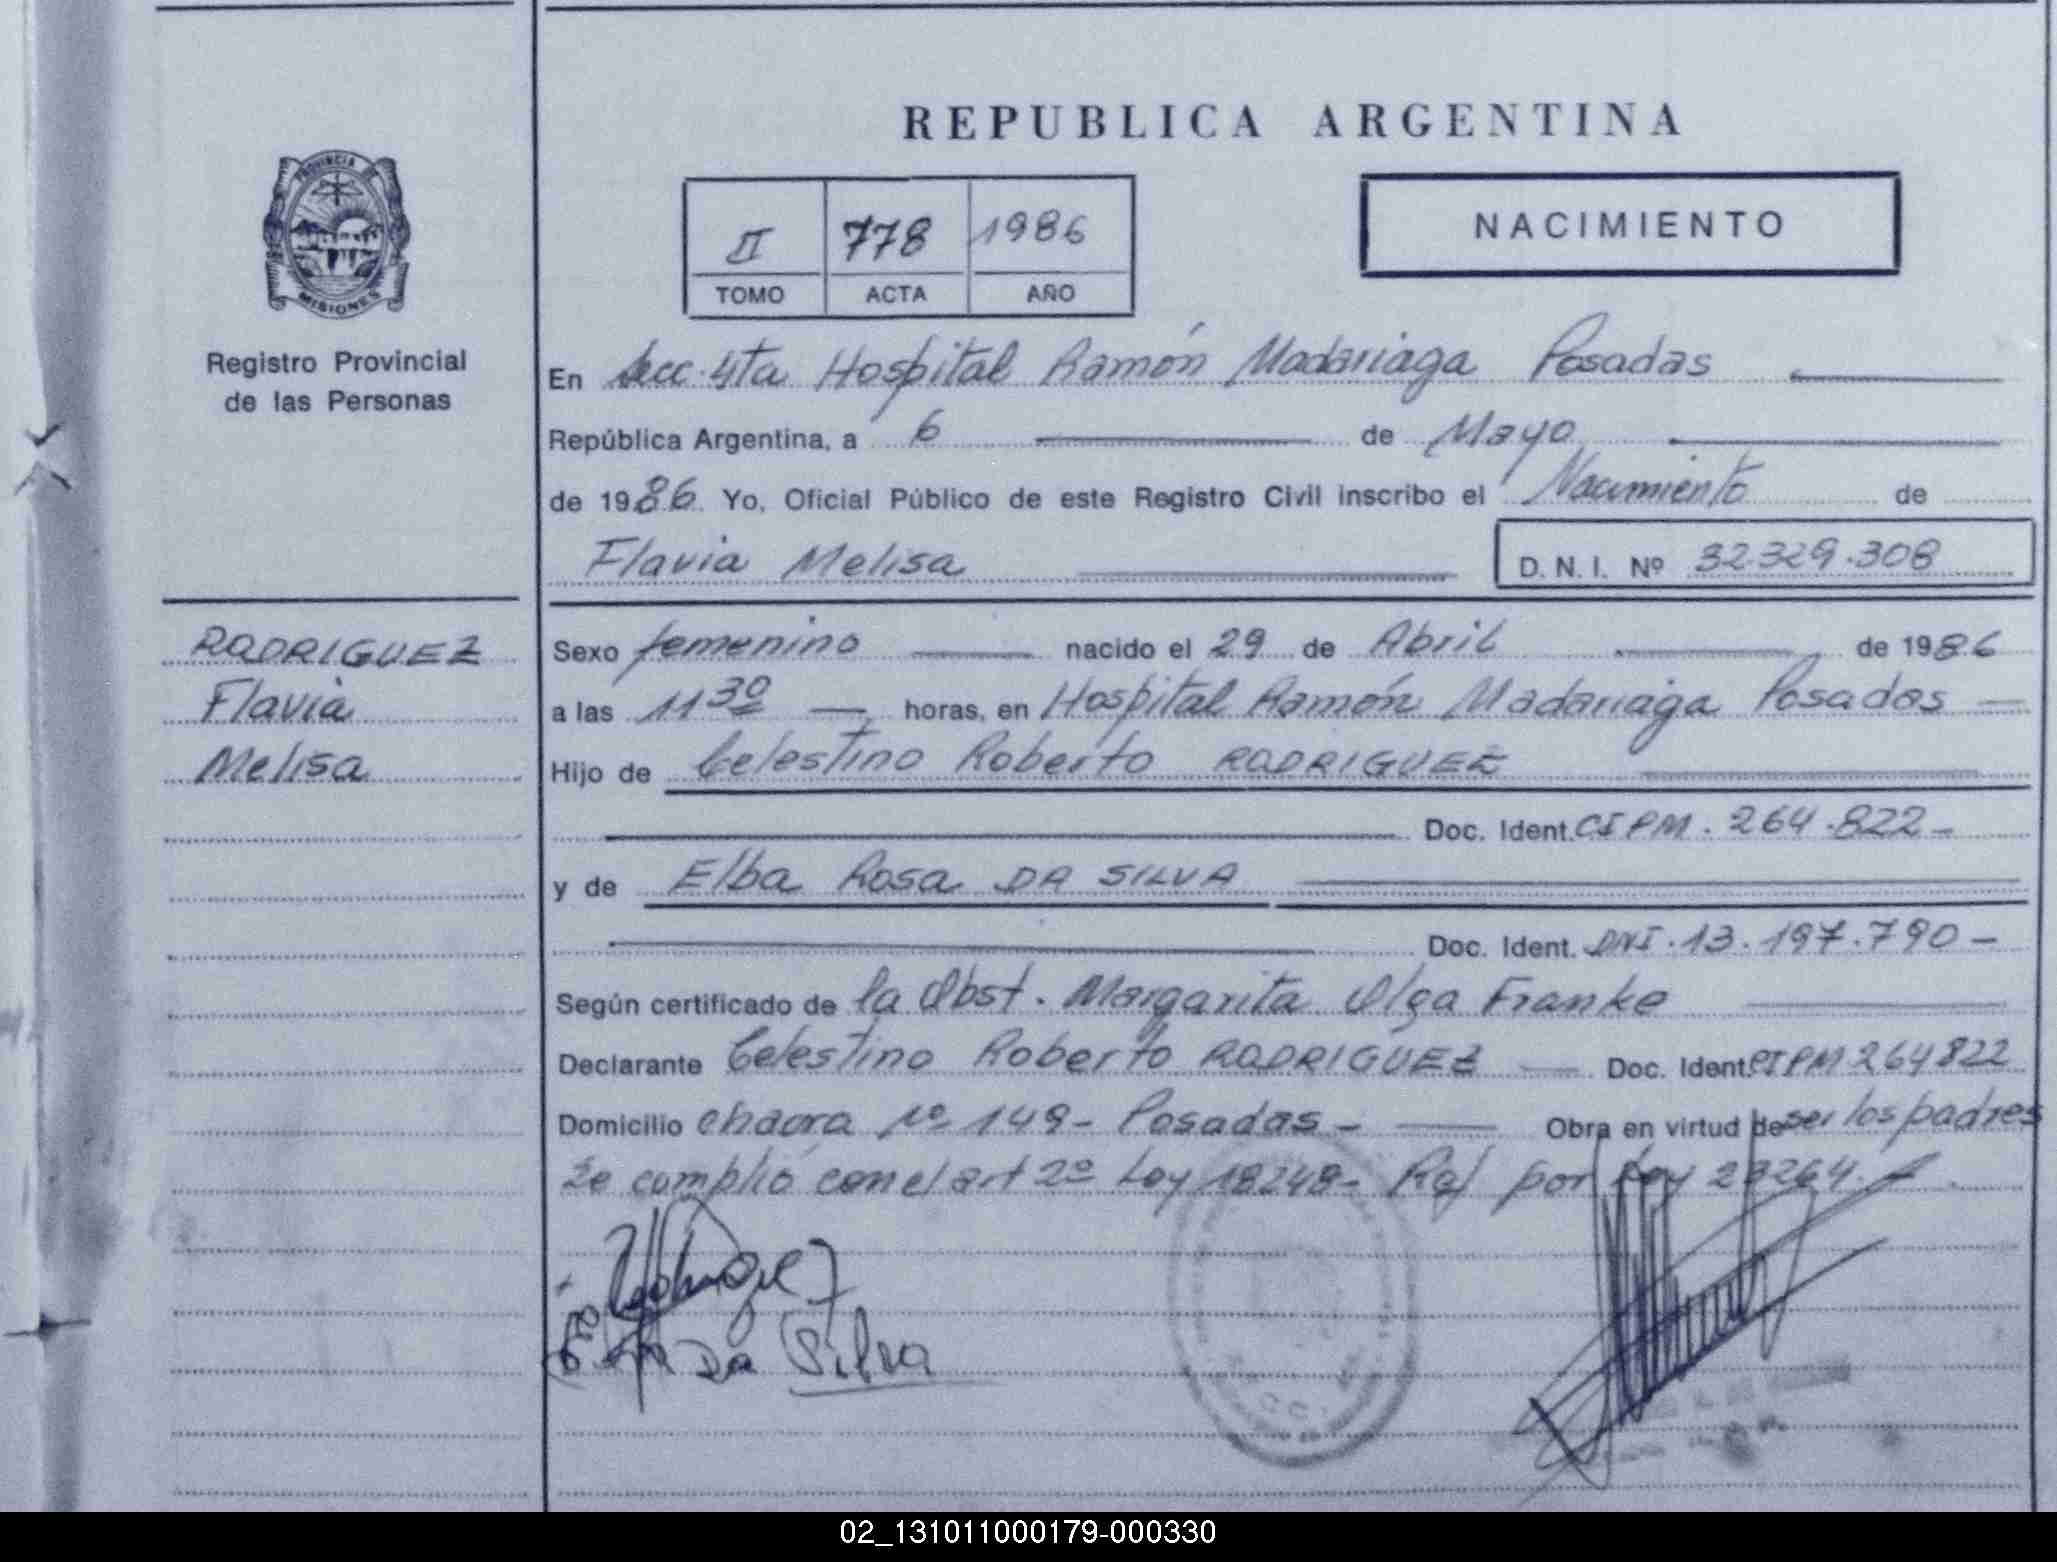 REPUBLICA ARGENTINA
PROVINCIA DE
MISIONES
Registro Provincial
de las Personas
II 778 1986
TOMO ACTA AÑO
NACIMIENTO
En Secc. 4ta Hospital Ramón Madariaga Posadas
República Argentina, a 6 de Mayo
de 1986. Yo, Oficial Público de este Registro Civil inscribo el Nacimiento de
Flavia Melisa D. N. I. Nº 32.329.308
RODRIGUEZ
Flavia
Melisa
Sexo femenino nacido el 29 de Abril de 1986
a las 11 30 horas, en Hospital Ramón Madariaga Posadas
Hijo de Celestino Roberto RODRIGUEZ
Doc. Ident. CIPM. 264.822-
y de Elba Rosa DA SILVA
Doc. Ident. DNI. 13.197.790-
Según certificado de la Obst. Margarita Olga Franke
Declarante Celestino Roberto RODRIGUEZ Doc. Ident. CIPM 264822
Domicilio chacra Nº 149- Posadas- Obra en virtud de ser los padres
Se cumplió con el art 2º Ley 18248- Ref por Ley 23264.
Da Silva
02_131011000179-000330